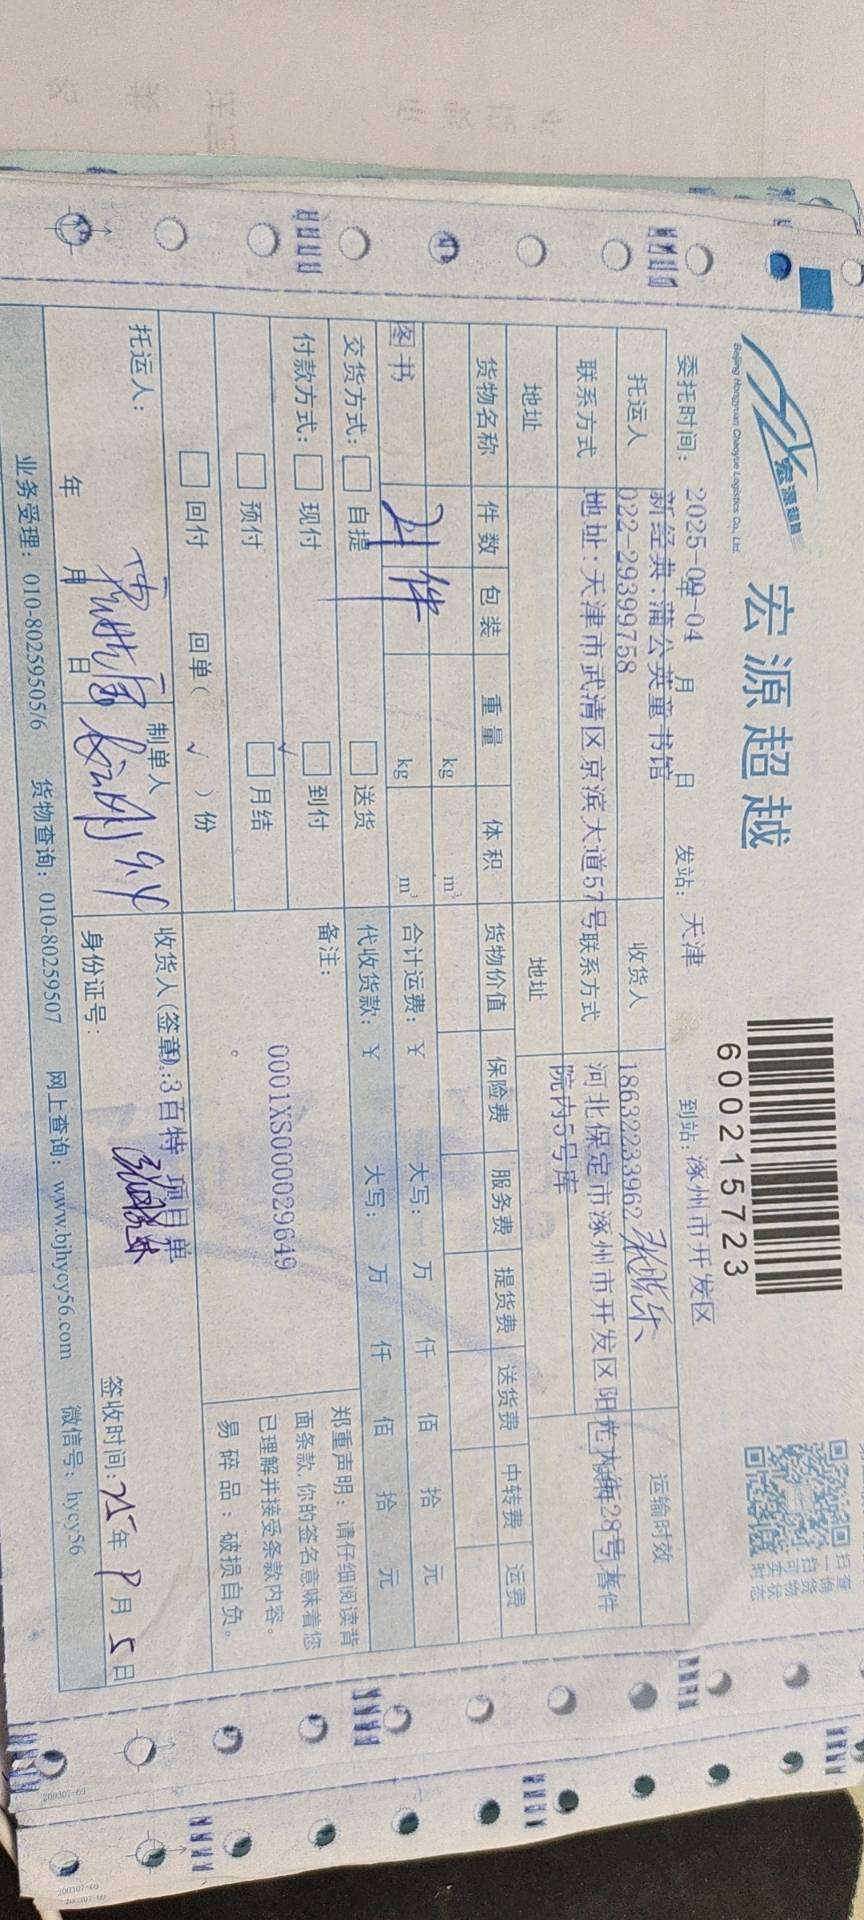 宏源超越
Beijing Hongyuan Chaoyue Logistics Co., Ltd.
宏源超越
6000215723
扫查
一询
扫货
可物
实状
时态
委托时间: 2025-09-04 年 月 日 发站: 天津 到站: 涿州市开发区
托运人 新经典:蒲公英童书馆 收货人 18632233962 运输时效
联系方式 022-29399758 联系方式 河北保定市涿州市开发区阳光大街28号
地址 地址:天津市武清区京滨大道57号 地址 院内5号库
货物名称 件数 包装 重量 体积 货物价值 保险费 服务费 提货费 送货费 中转费 运费
kg m³
图书 21件 kg m³ 合计运费: ¥ 大写: 万 仟 佰 拾 元
交货方式: 自提 送货 代收货款: ¥ 大写: 万 仟 佰 拾 元
付款方式: 现付 到付 备注:
预付 月结 √
回付 回单( √ )份
0001XS0000029649
。
郑重声明: 请仔细阅读背
面条款, 你的签名意味着您
已理解并接受条款内容。
易碎品: 破损自负。
托运人: 年 月 日
制单人 9.4
收货人(签章): 3百特 项目单
身份证号:
签收时间: 25年9月5日
业务受理: 010-80259505/6 货物查询: 010-80259507 网上查询: www.bjhycy56.com 微信号: hycy56
200307-69
200307-69
200307-69